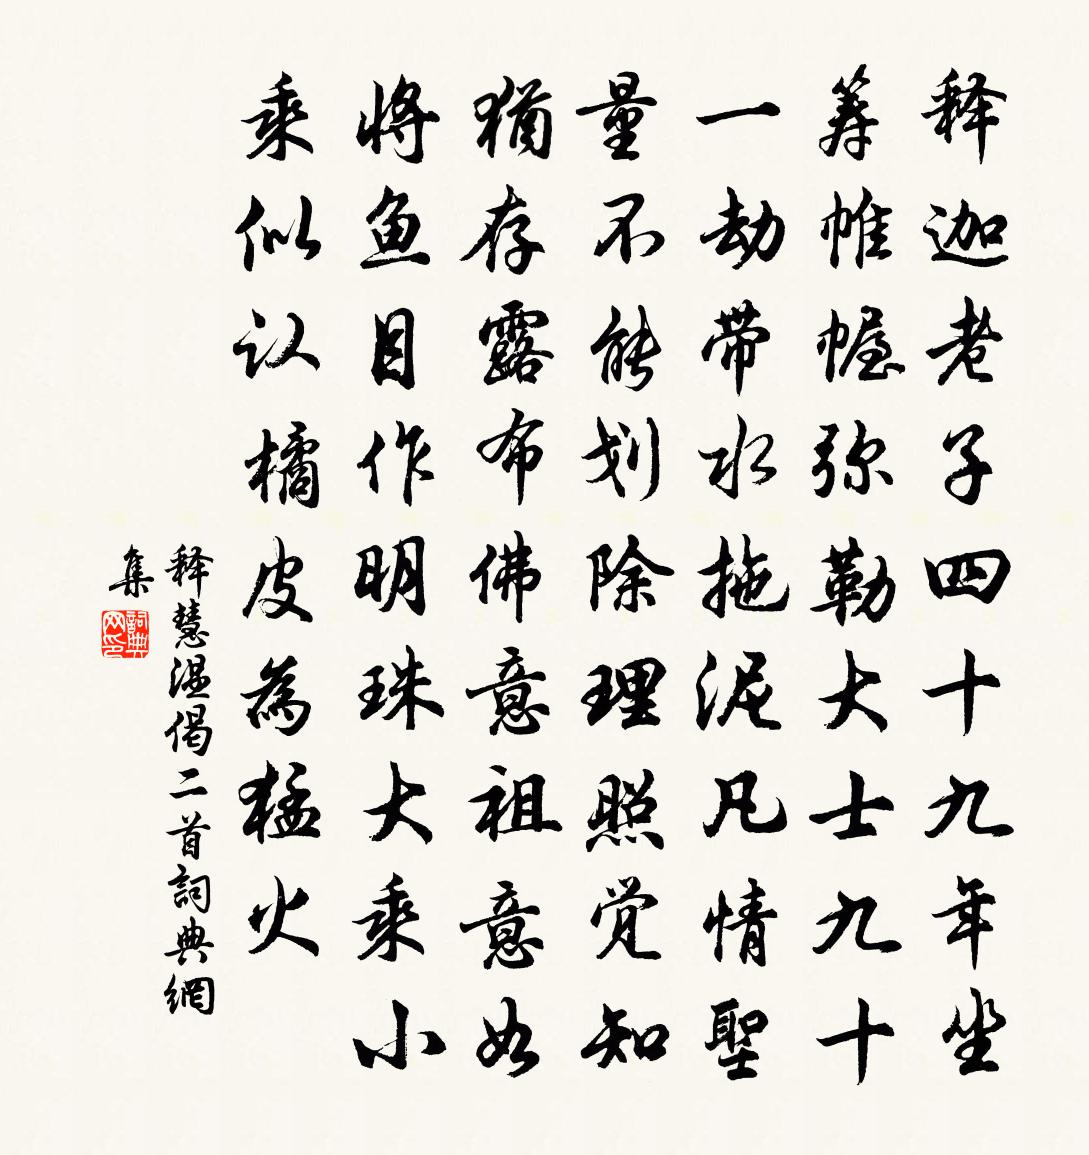 释迦老子四十九年坐
筹帷幄弥勒大士九十
一劫带水拖泥凡情聖
量不能划除理照觉知
犹存露布佛意祖意如
将鱼目作明珠大乘小
乘似认橘皮為猛火
释慧温偈二首詞典網
集
詞典网印